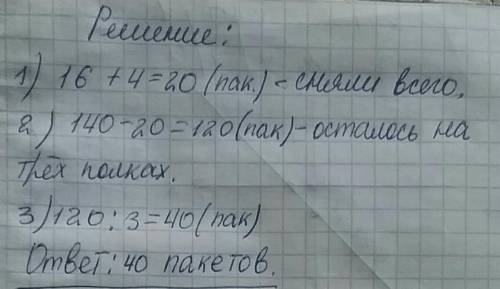 Решение:
1) 16 + 4 = 20 (пак.) - сняли всего.
2) 140 - 20 = 120 (пак) - осталось на
трёх полках.
3) 120 : 3 = 40 (пак)
Ответ: 40 пакетов.